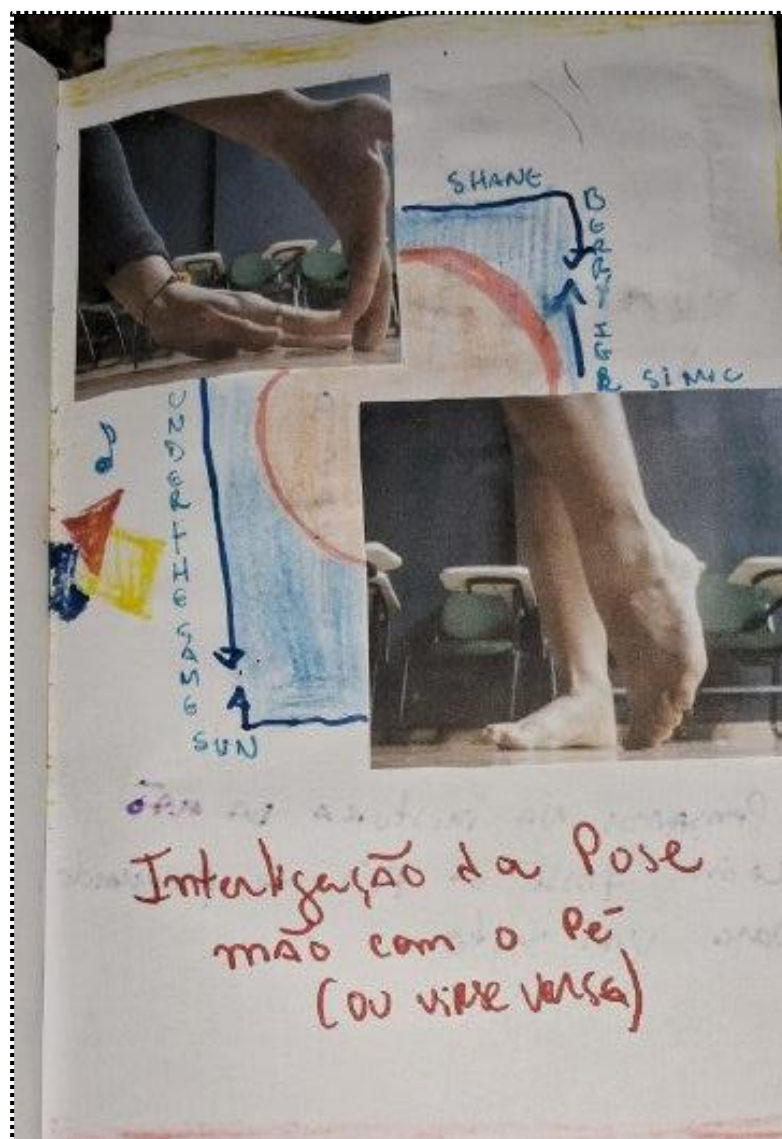 SHANE
BERRYIER
SIMIC
UNDER THE SAME
SUN
Interligação da Pose
mão com o Pé
(ou virse versa)